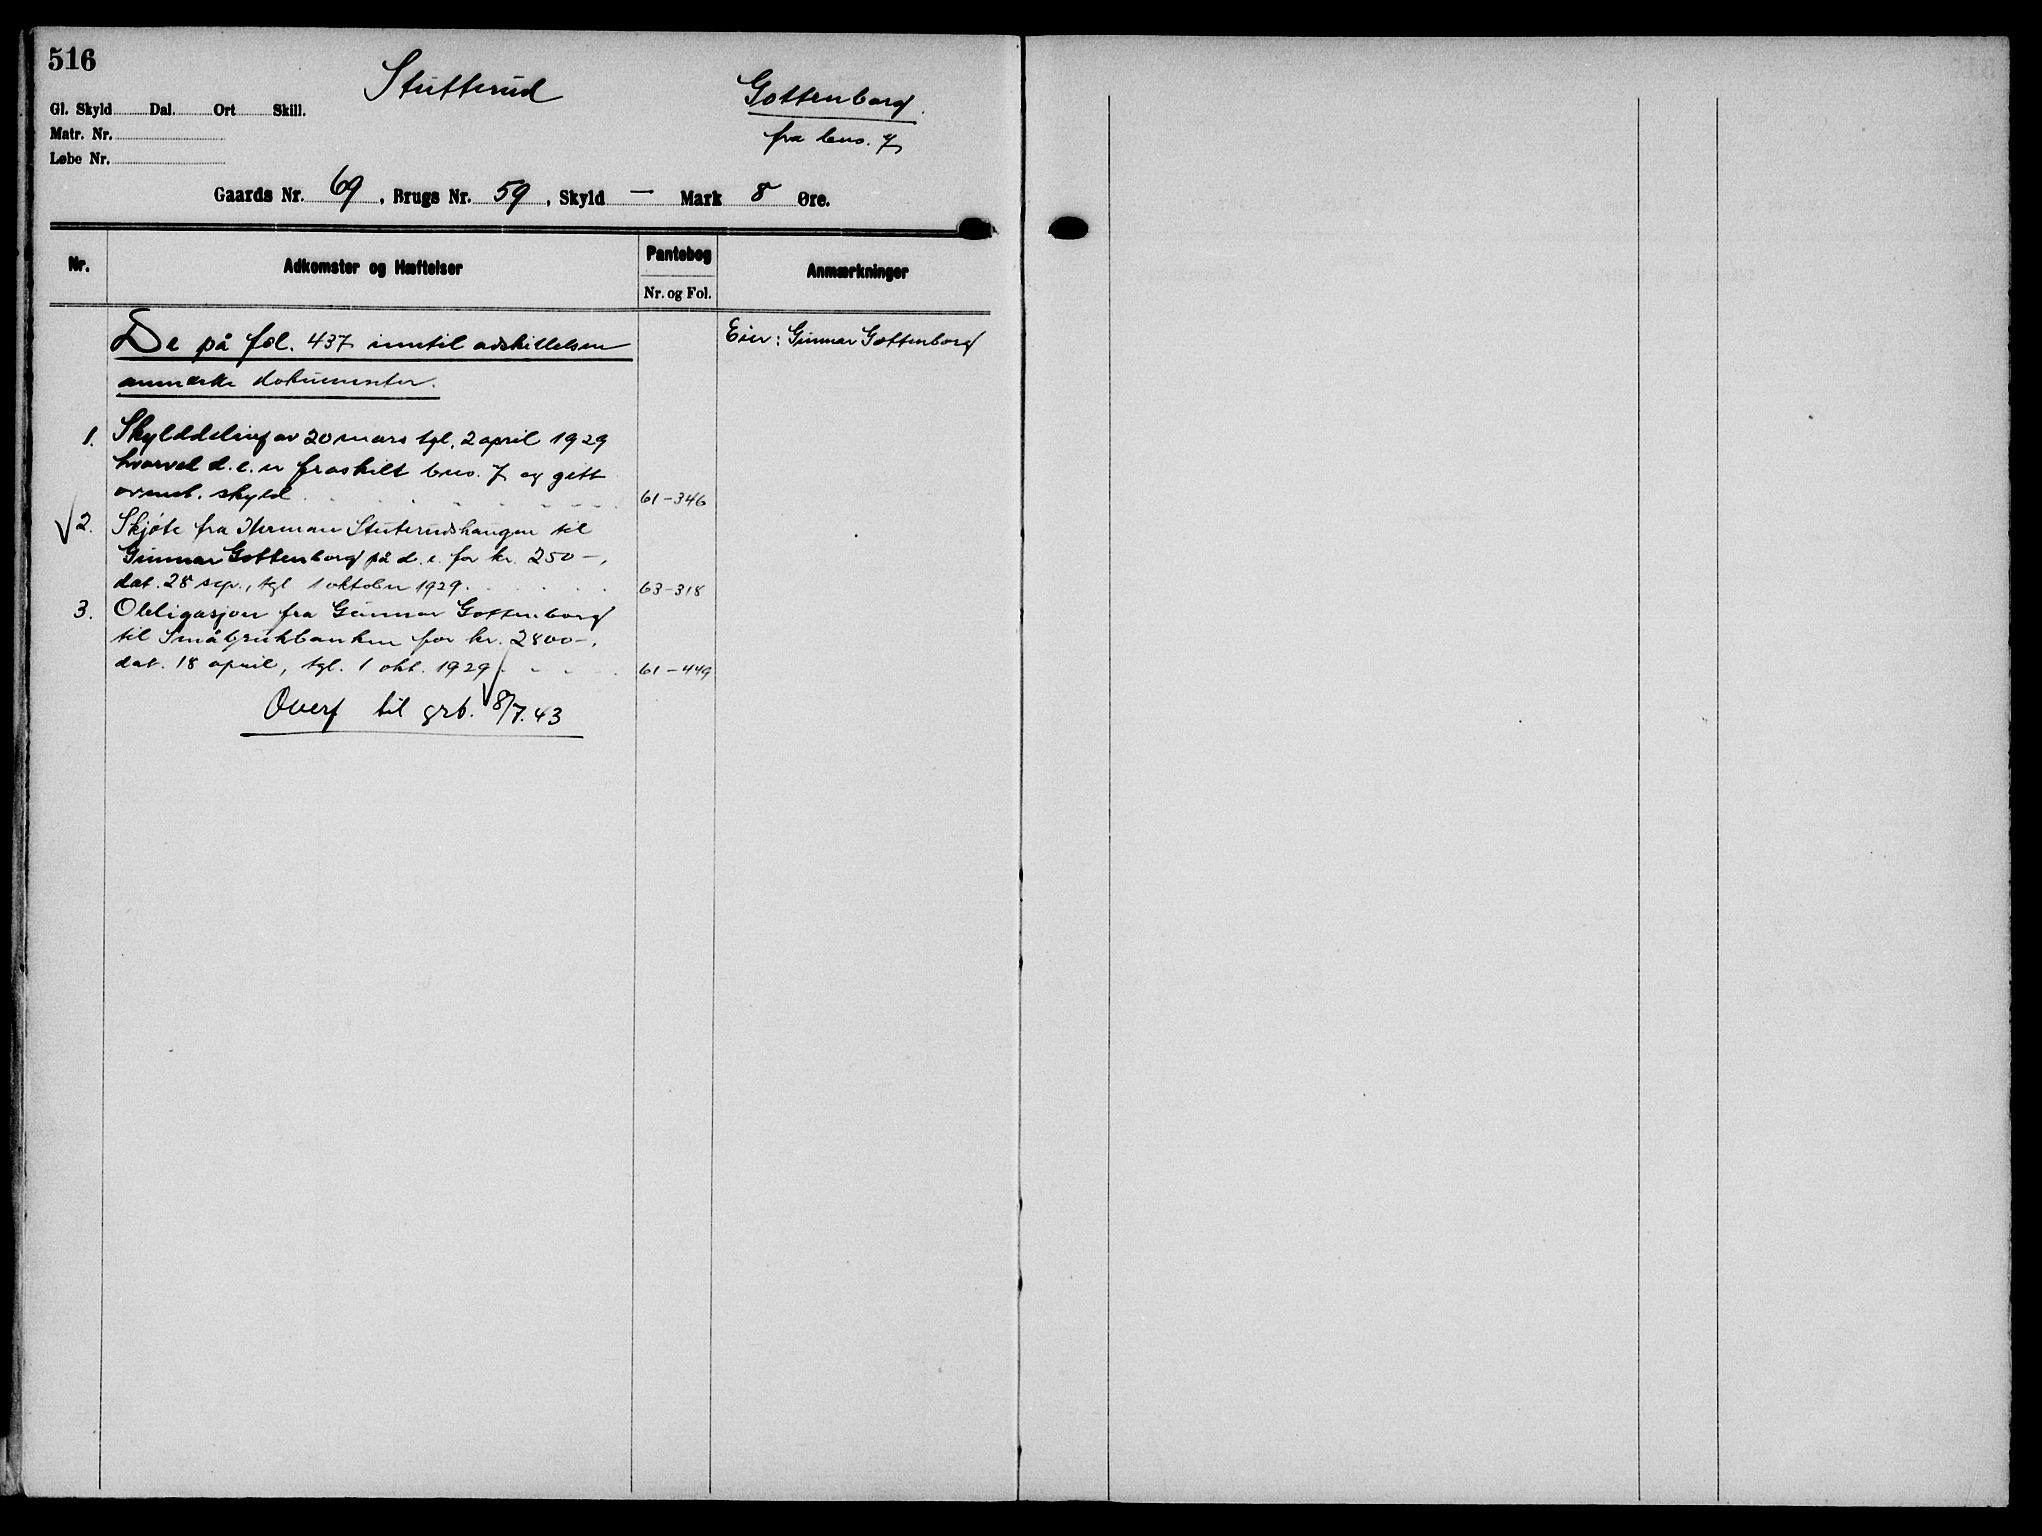 516
Stutterud
Gottenborg.
fra brno. 7
Gl. Skyld Dal. Ort Skill.
Matr. Nr.
Løbe Nr.
Gaards Nr. 69, Brugs Nr. 59, Skyld — Mark 8 Øre.
Nr. Adkomster og Hæftelser Pantebog Anmærkninger
Nr. og Fol.
De på fol. 437 inntil adskillelsen
anmerkte dokumenter.
Eier: Gunnar Gottenborg
1. Skylddeling av 20 mars tgl. 2 april 1929
hvorved d. e. er fraskilt brno. 7 og gitt
ovennt. skyld 61-346
2. Skjøte fra Herman Stuterudshaugen til
Gunnar Gottenborg på d. e. for kr. 250-,
dat. 28 sep., tgl 1 oktober 1929. 63-318
3. Obligasjon fra Gunnar Gottenborg
til Småbrukbanken for kr. 2800-,
dat. 18 april, tgl. 1 okt. 1929 61-449
Overf til grb. 8/7.43